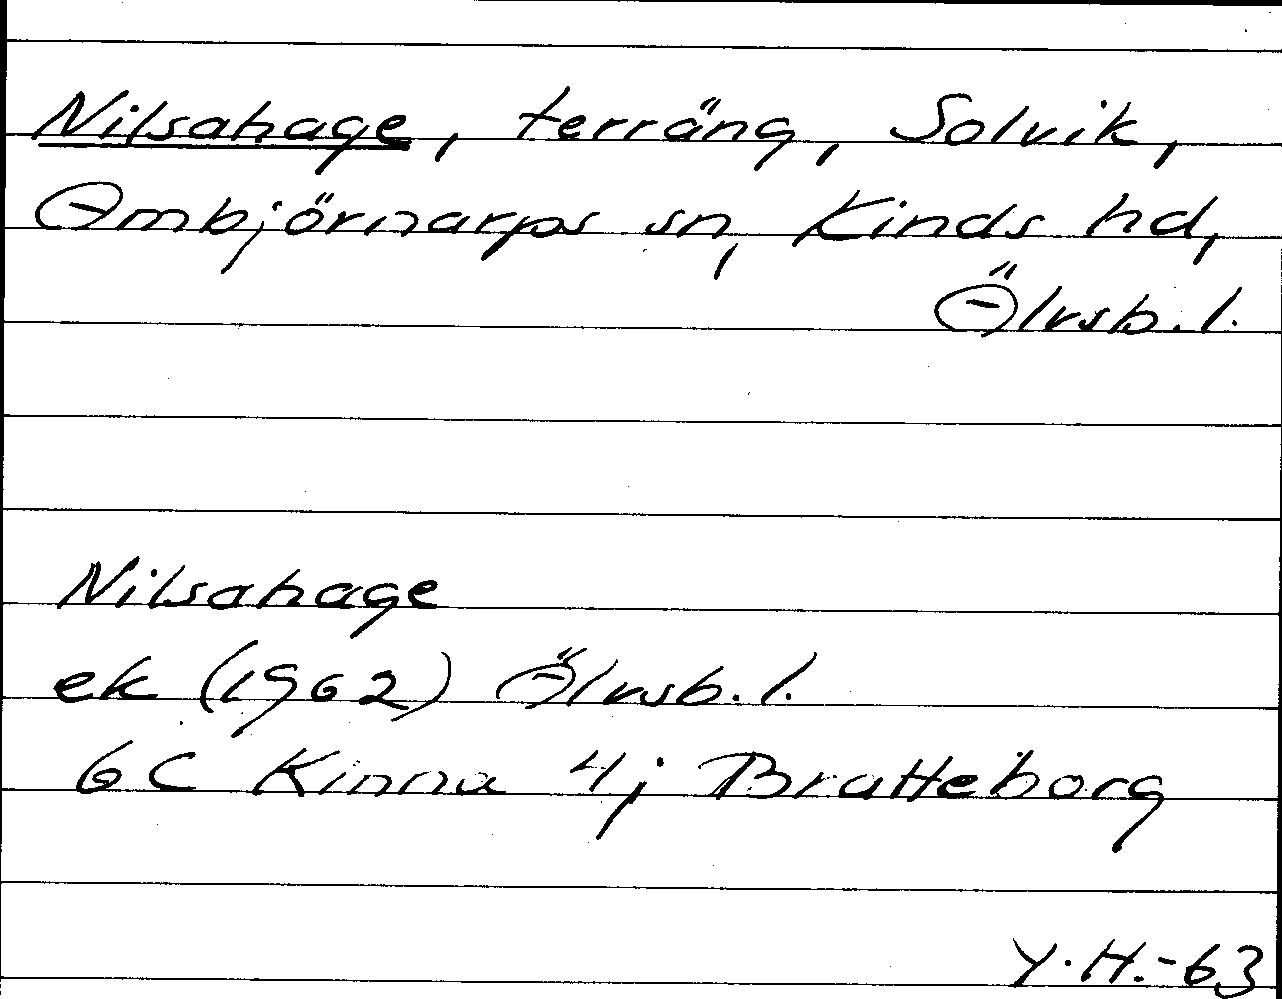 Nilsahage, terräng, Solvik,
Ombjörnarps sn, Kinds hd,
Älvsb. l.
Nilsahage
ek (1962) Älvsb. l.
6C Kinna 4j Bratteborg
Y. H. -63